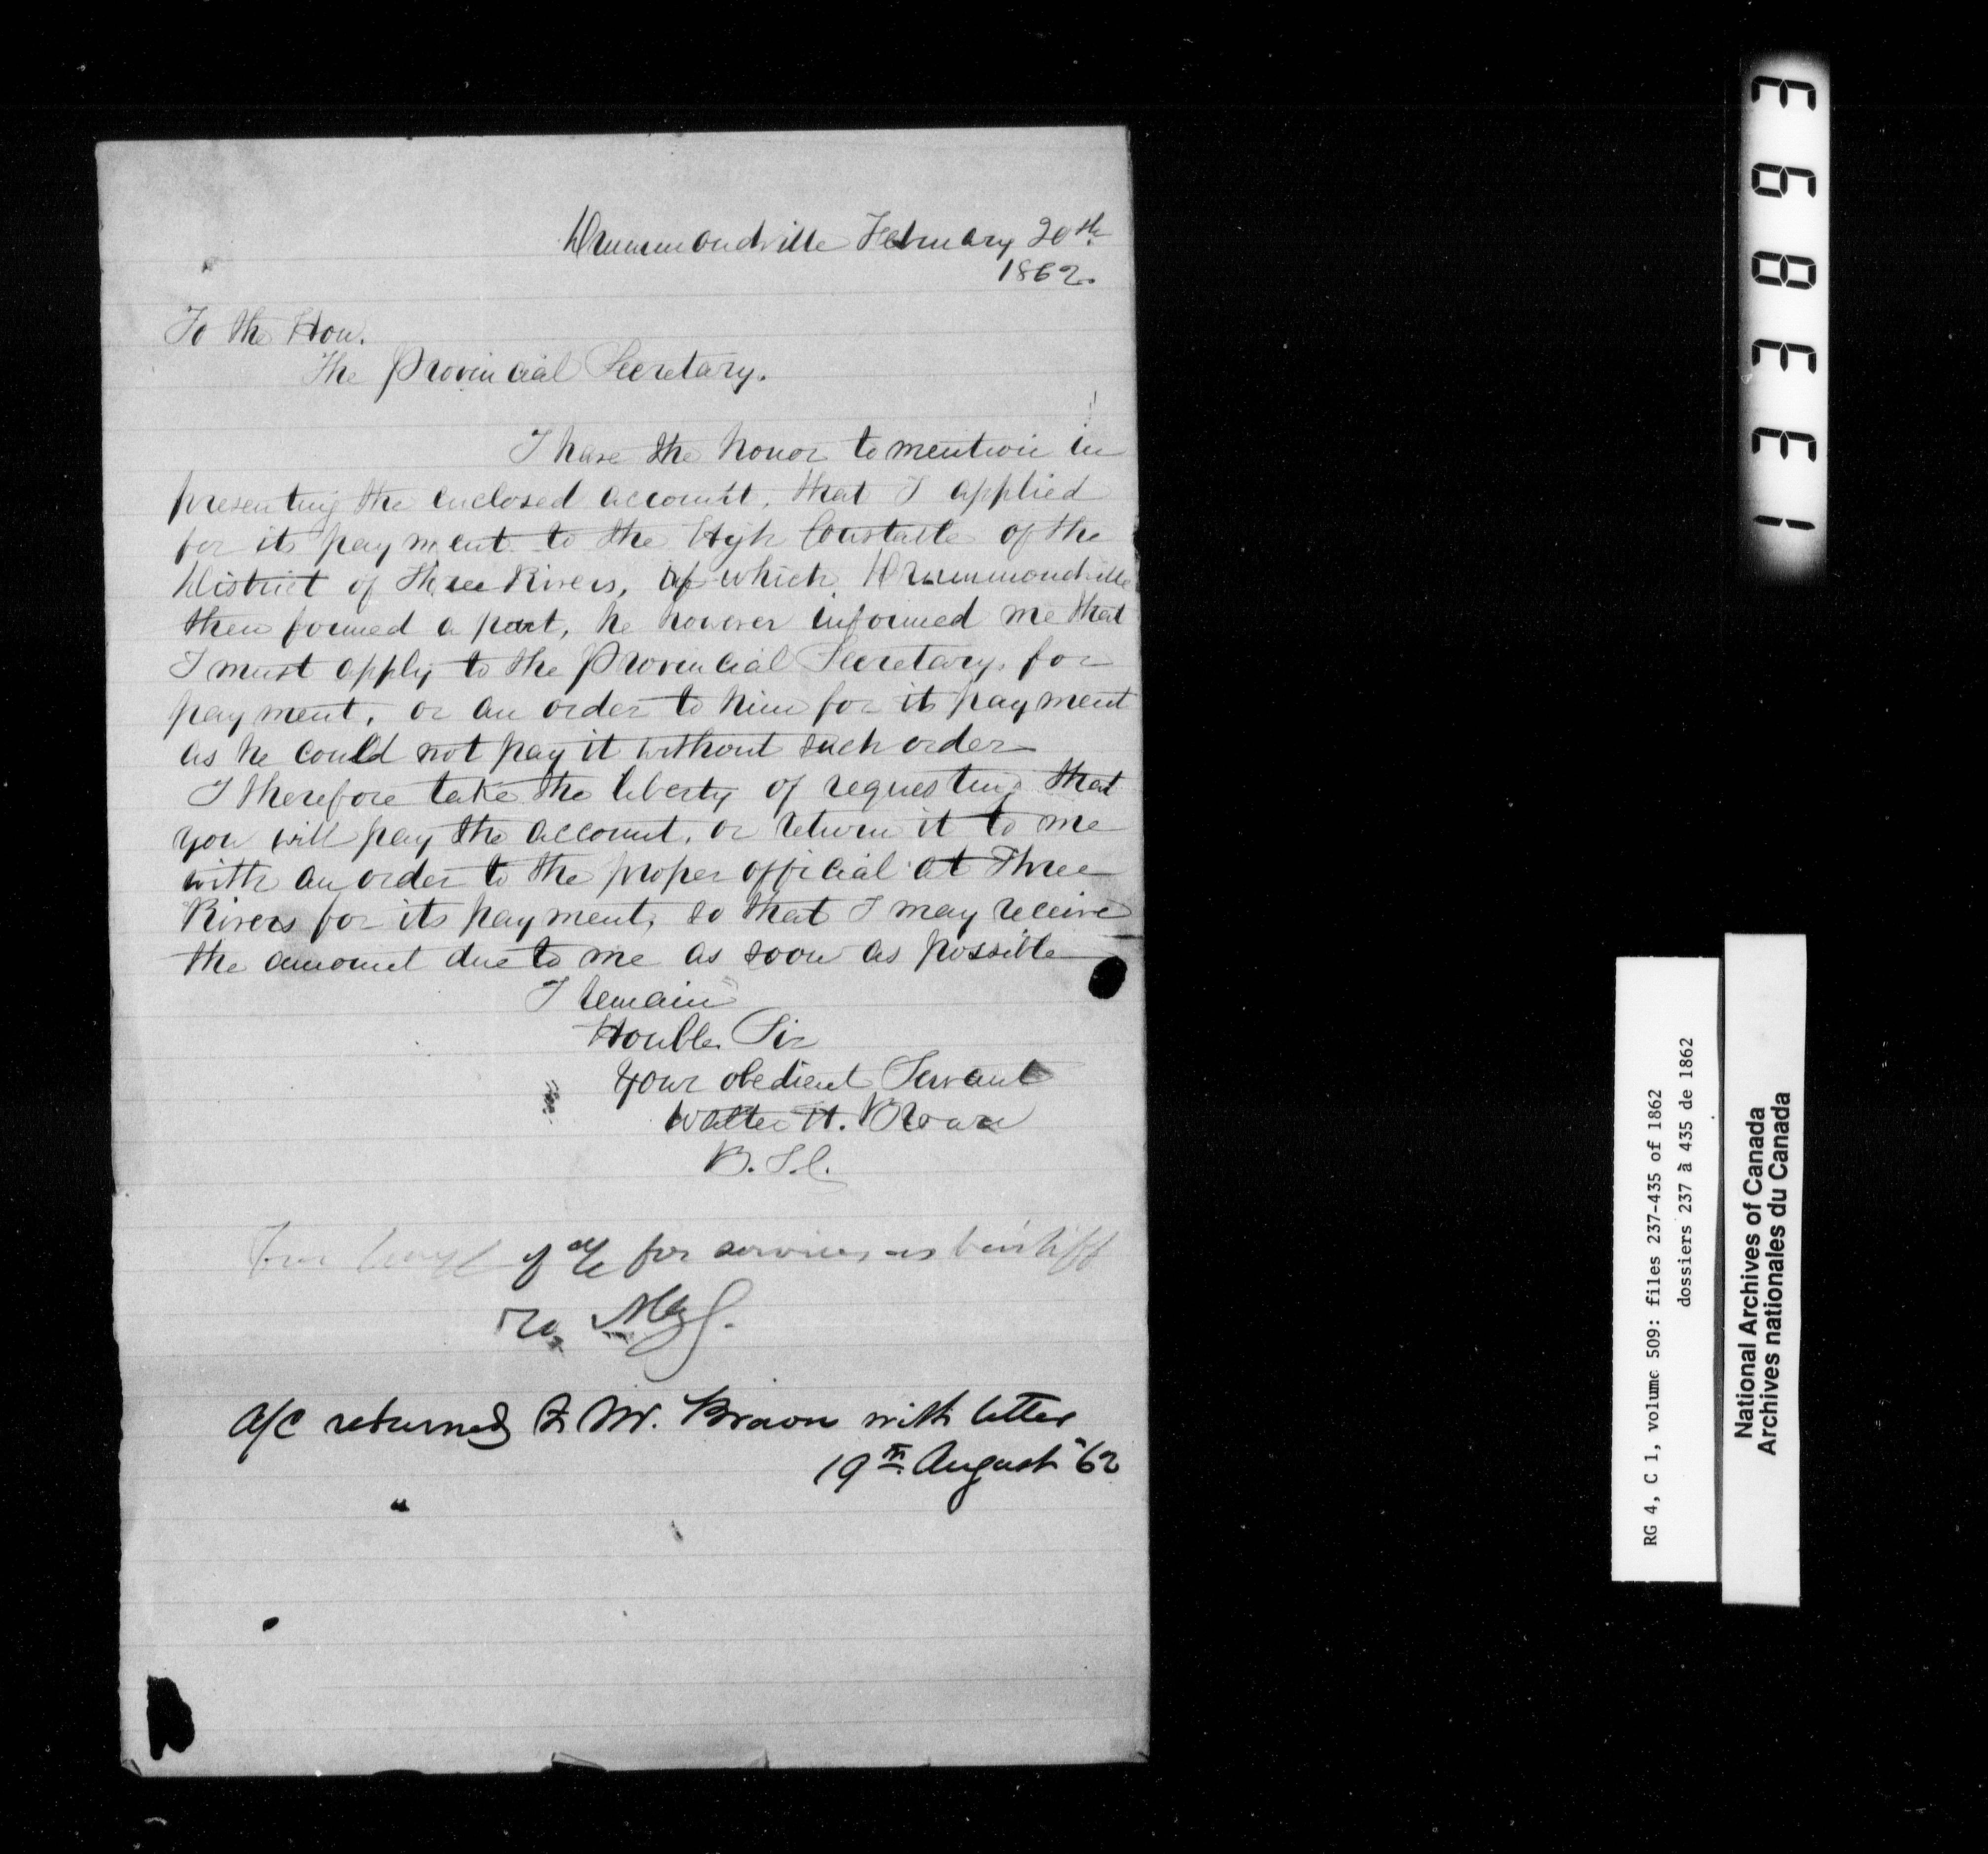 Drummondville February 20th
1862.
To the Hon.
The Provincial Secretary.
I have the honor to mention in
presenting the enclosed account, that I applied
for its payment to the High Constable of the
District of Three Rivers, of which Drummondville
then formed a part, he however informed me that
I must apply to the Provincial Secretary, for
payment, or an order to him for its payment
as he could not pay it without such order
I therefore take the liberty of requesting that
you will pay the account, or return it to me
with an order to the proper official at Three
Rivers for its payment, so that I may receive
the amount due to me as soon as possible
I remain
Honble. Sir
Your obedient Servant
Walter H. Brown
B.S.C.
of a/c for services as bailiff
a/c returned to Mr. Brown with letter
19th August "62
138963
RG 4, C 1, volume 509: files 237-435 of 1862
dossiers 237 à 435 de 1862
National Archives of Canada
Archives nationales du Canada